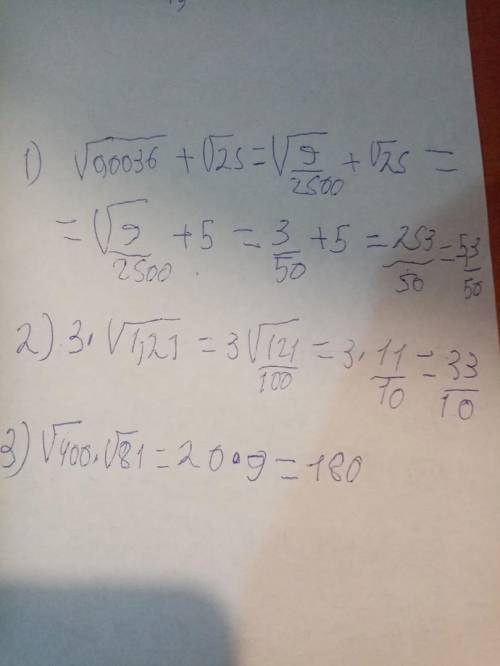 1) √0,0036 + √25 = √9/2500 + √25 =
= √9/2500 + 5 = 3/50 + 5 = 253/50 = 53/50
2) 3 · √1,21 = 3√121/100 = 3 · 11/10 = 33/10
3) √400 · √81 = 20 · 9 = 180